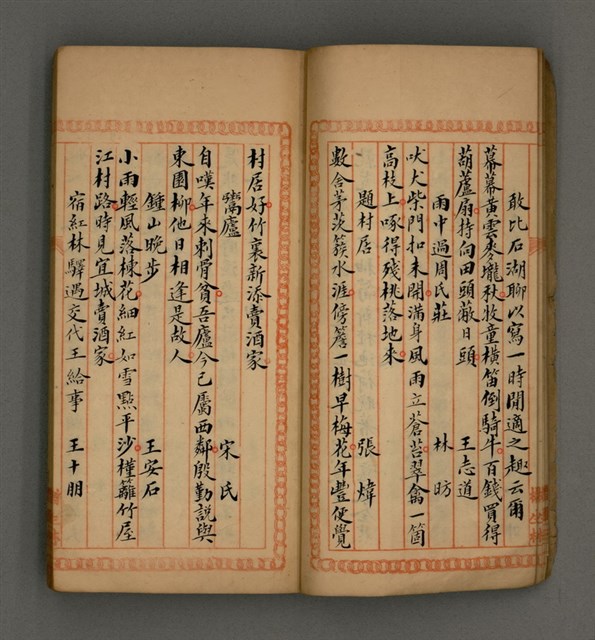 敢比石湖聊以寫一時閒適之趣云爾
王志道
幕幕黃雲麥壠秋牧童橫笛倒騎牛百錢買得
葫蘆扇持向田頭蔽日頭
雨中過周氏莊 林昉
吠犬柴門扣未開滿身風雨立蒼苔翠禽一箇
高枝上啄得殘桃落地來
題村居 張煒
數舍茅茨簇水涯傍簷一樹早梅花年豐便覺
村居好竹裏新添賣酒家
鬻廬 宋氏
自嘆年來刺骨貧吾廬今已屬西鄰殷勤說與
東園柳他日相逢是故人
鍾山晚步 王安石
小雨輕風落楝花細紅如雪點平沙槿籬竹屋
江村路時見宜城賣酒家
宿紅林驛遇交代王給事 王十朋